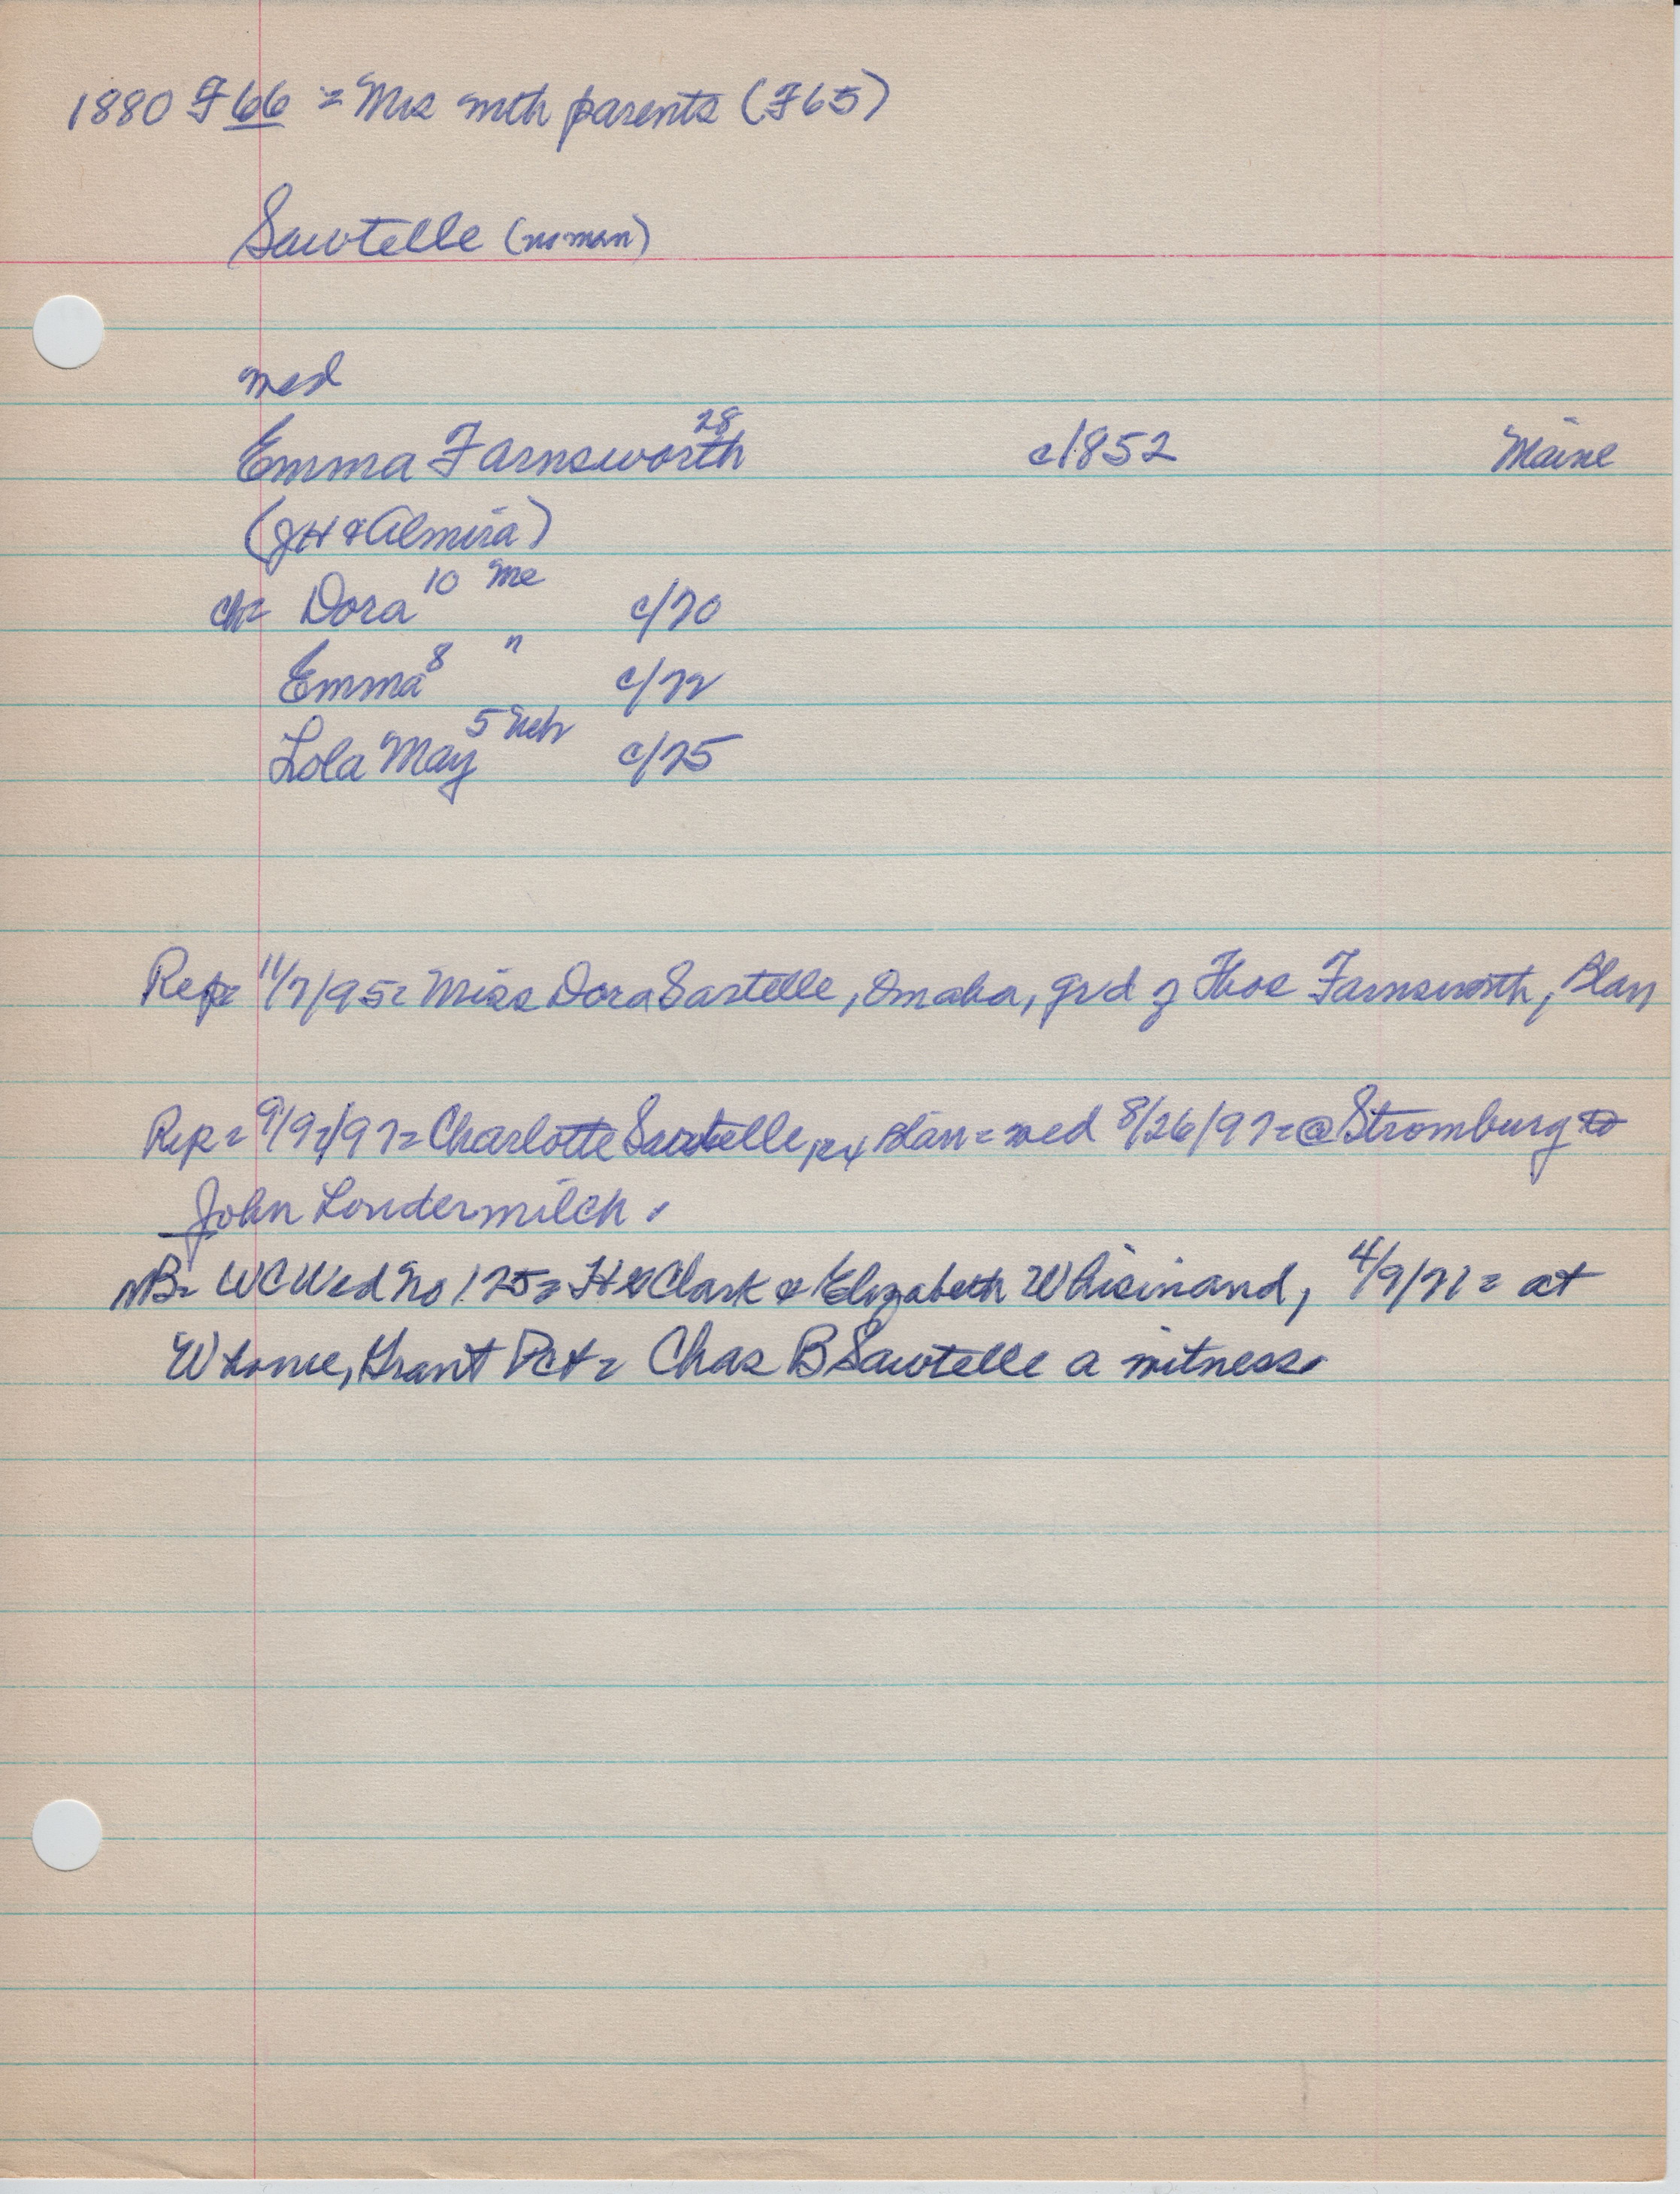 1880 F 66 = Mrs with parents (F65)
Sawtelle (no man)
med
Emma Farnsworth 28 c1852 Maine
(JH & Almira)
ch= Dora 10 Me c/70
Emma 8 " c/72
Lola May 5 Neb c/75
Rep= 11/7/95= Miss Dora Sartelle, Omaha, grd of Thos Farnsworth, Blair
Rep= 9/9/97= Charlotte Sawtelle, Blair = wed 8/26/97= @ Stromburg to
John Loudermilch.
NB= WC Wed No 125= H Clark & Elizabeth Whisinand, 4/9/71= at
W home, Grant Pct= Chas B Sawtelle a witness